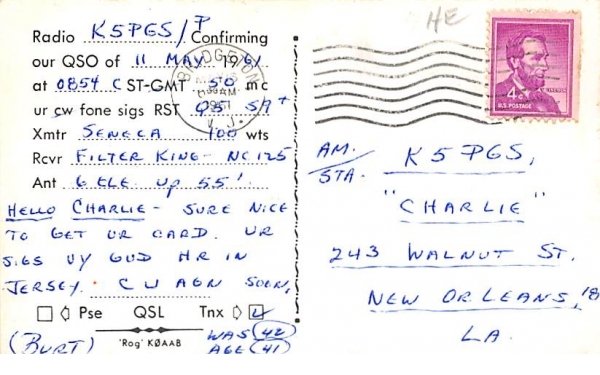 Radio K5PGS/P Confirming
our QSO of 11 MAY 1961
at 0854 C ST-GMT 50 mc
ur cw fone sigs RST Q5 S9+
Xmtr SENECA 100 wts
Rcvr FILTER KING - NC125
Ant 6 ELE UP 55'
HELLO CHARLIE - SURE NICE
TO GET UR CARD. UR
SIGS VY GUD HR IN
JERSEY. C U AGN SOON,
Pse QSL Tnx
(BURT) 'Rog' KØAAB WAS (42)
AGE (41)
HE
BRIDGETON
AM
1961
N.J.
4¢
U.S. POSTAGE
AM. STA.
K5PGS,
"CHARLIE"
243 WALNUT ST.
NEW ORLEANS, 18
LA.